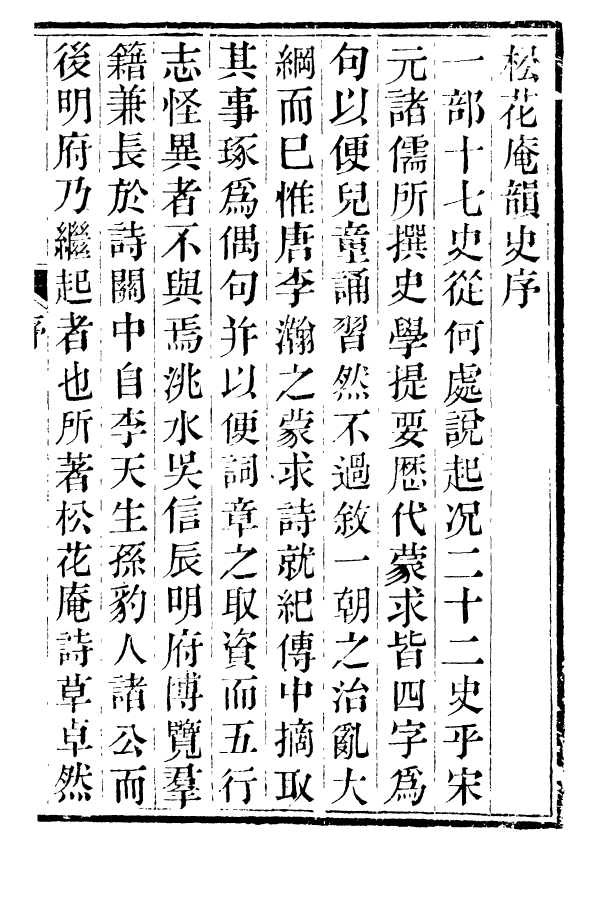 松花庵韻史序
一部十七史從何處說起况二十二史乎宋
元諸儒所撰史學提要歷代蒙求皆四字爲
句以便兒童誦習然不過敘一朝之治亂大
綱而已惟唐李瀚之蒙求詩就紀傳中摘取
其事琢爲偶句并以便詞章之取資而五行
志怪異者不與焉洮水吳信辰明府博覽羣
籍兼長於詩關中自李天生孫豹人諸公而
後明府乃繼起者也所著松花庵詩草卓然
序